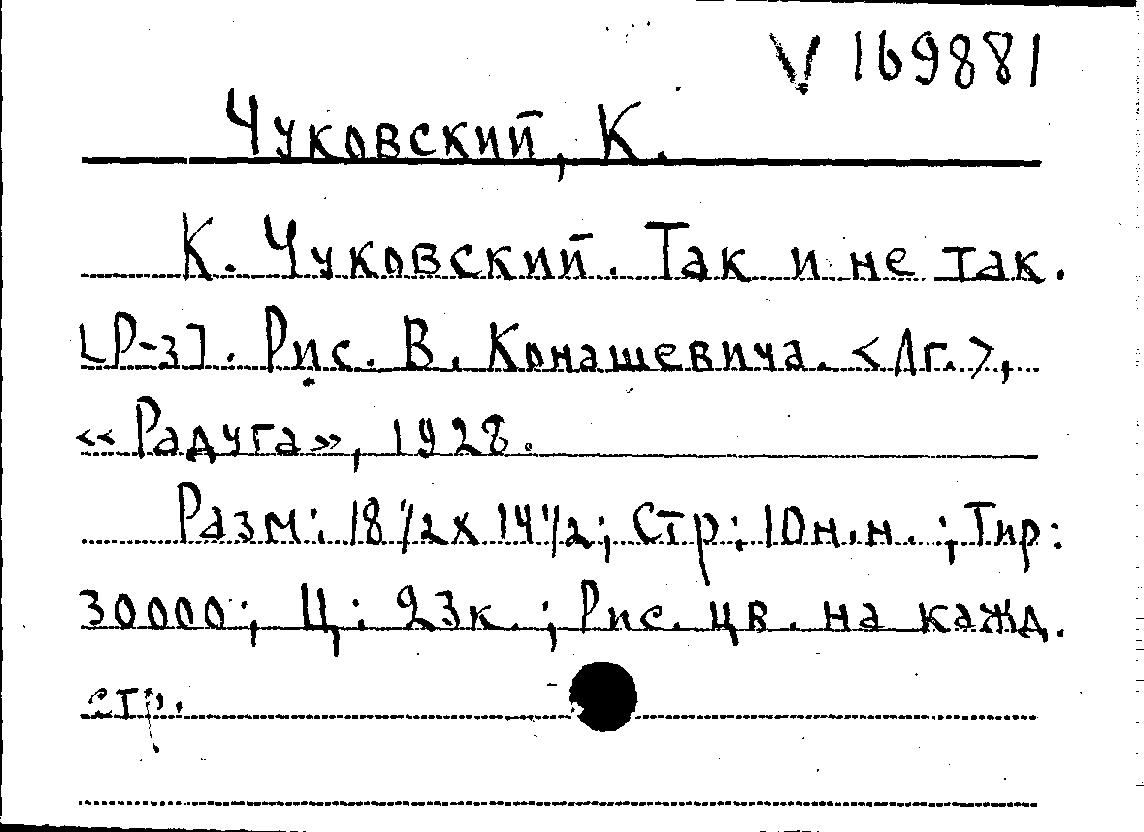 V 169881
Чуковский, К.
К. Чуковский. Так и не так.
[Р-з]. Рис. В. Конашевича. <Лг.>,
«Радуга», 1928.
Разм: 18 1/2 х 14 1/2; Стр: 10 н.н. ; Тир:
30000; Ц: 23к. ; Рис. цв. на кажд.
стр.